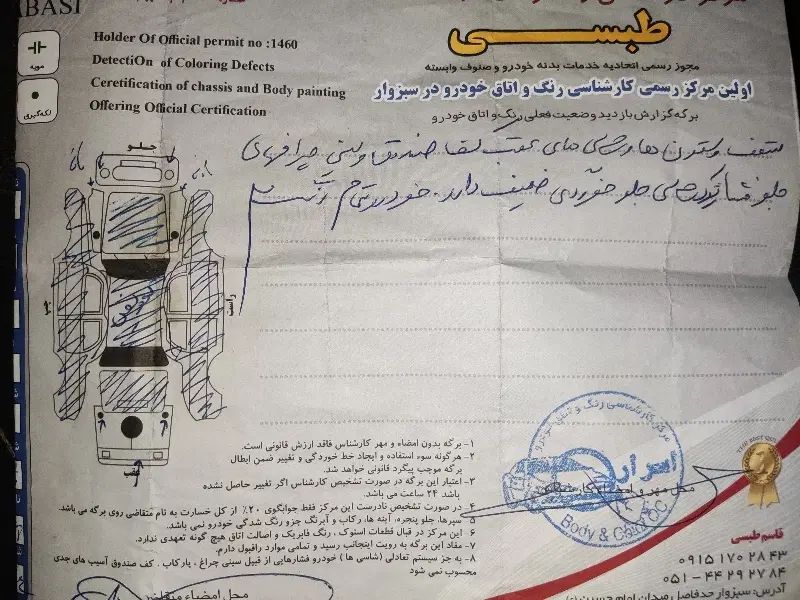 ABASI
Holder Of Official permit no :1460
DetectiOn of Coloring Defects
Ceretification of chassis and Body painting
Offering Official Certification
طبسی
مجوز رسمی اتحادیه خدمات بدنه خودرو و صنوف وابسته
اولین مرکز رسمی کارشناسی رنگ و اتاق خودرو در سبزوار
برگه گزارش بازدید وضعیت فعلی رنگ و اتاق خودرو
مویه
لکه‌گیری
جلو
سقف و ستون ها و شاسی های عقب کف صندوق و سینی چراغهای
جلو فشار رکن شاسی جلو خوردگی ضعیف دارد. خودرو تمام رنگ
چپ
راست
عقب
۱- برگه بدون امضاء و مهر کارشناس فاقد ارزش قانونی است.
۲- هرگونه سوء استفاده و ایجاد خط خوردگی و تغییر ضمن ابطال
برگه موجب پیگرد قانونی خواهد شد.
۳- اعتبار این برگه در صورت تشخیص کارشناس اگر تغییر حاصل نشده
باشد ۲۴ ساعت می باشد.
۴- در صورت تشخیص نادرست این مرکز فقط جوابگوی ۲۰٪ از کل خسارت به نام متقاضی روی برگه می باشد.
۵- سپرها، جلو پنجره، آینه ها، رکاب و آبرنگ جزو رنگ شدگی خودرو نمی باشد.
۶- این مرکز در قبال قطعات استوک، رنگ فابریک و اصالت اتاق هیچ گونه تعهدی ندارد.
۷- مفاد این برگه به رویت اینجانب رسید و تمامی موارد راقبول دارم.
۸- به جز سیستم تعادلی (شاسی ها) خودرو فشارهایی از قبیل سینی چراغ، پارکاب، کف صندوق آسیب های جدی
محسوب نمی شود
محل امضاء متقاضی
مرکز کارشناسی رنگ و اتاق خودرو
اسرار
محل مهر و امضاء کارشناس
Body & Color QC
THE BEST QUALITY
قاسم طبسی
۰۹۱۵ ۱۷۰ ۲۸ ۴۳
۰۵۱ - ۴۴ ۲۹ ۲۷ ۸۴
آدرس: سبزوار حدفاصل میدان امام حسین (ع)